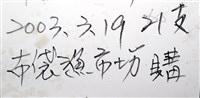 2003.3.19 21支
布袋漁市場購